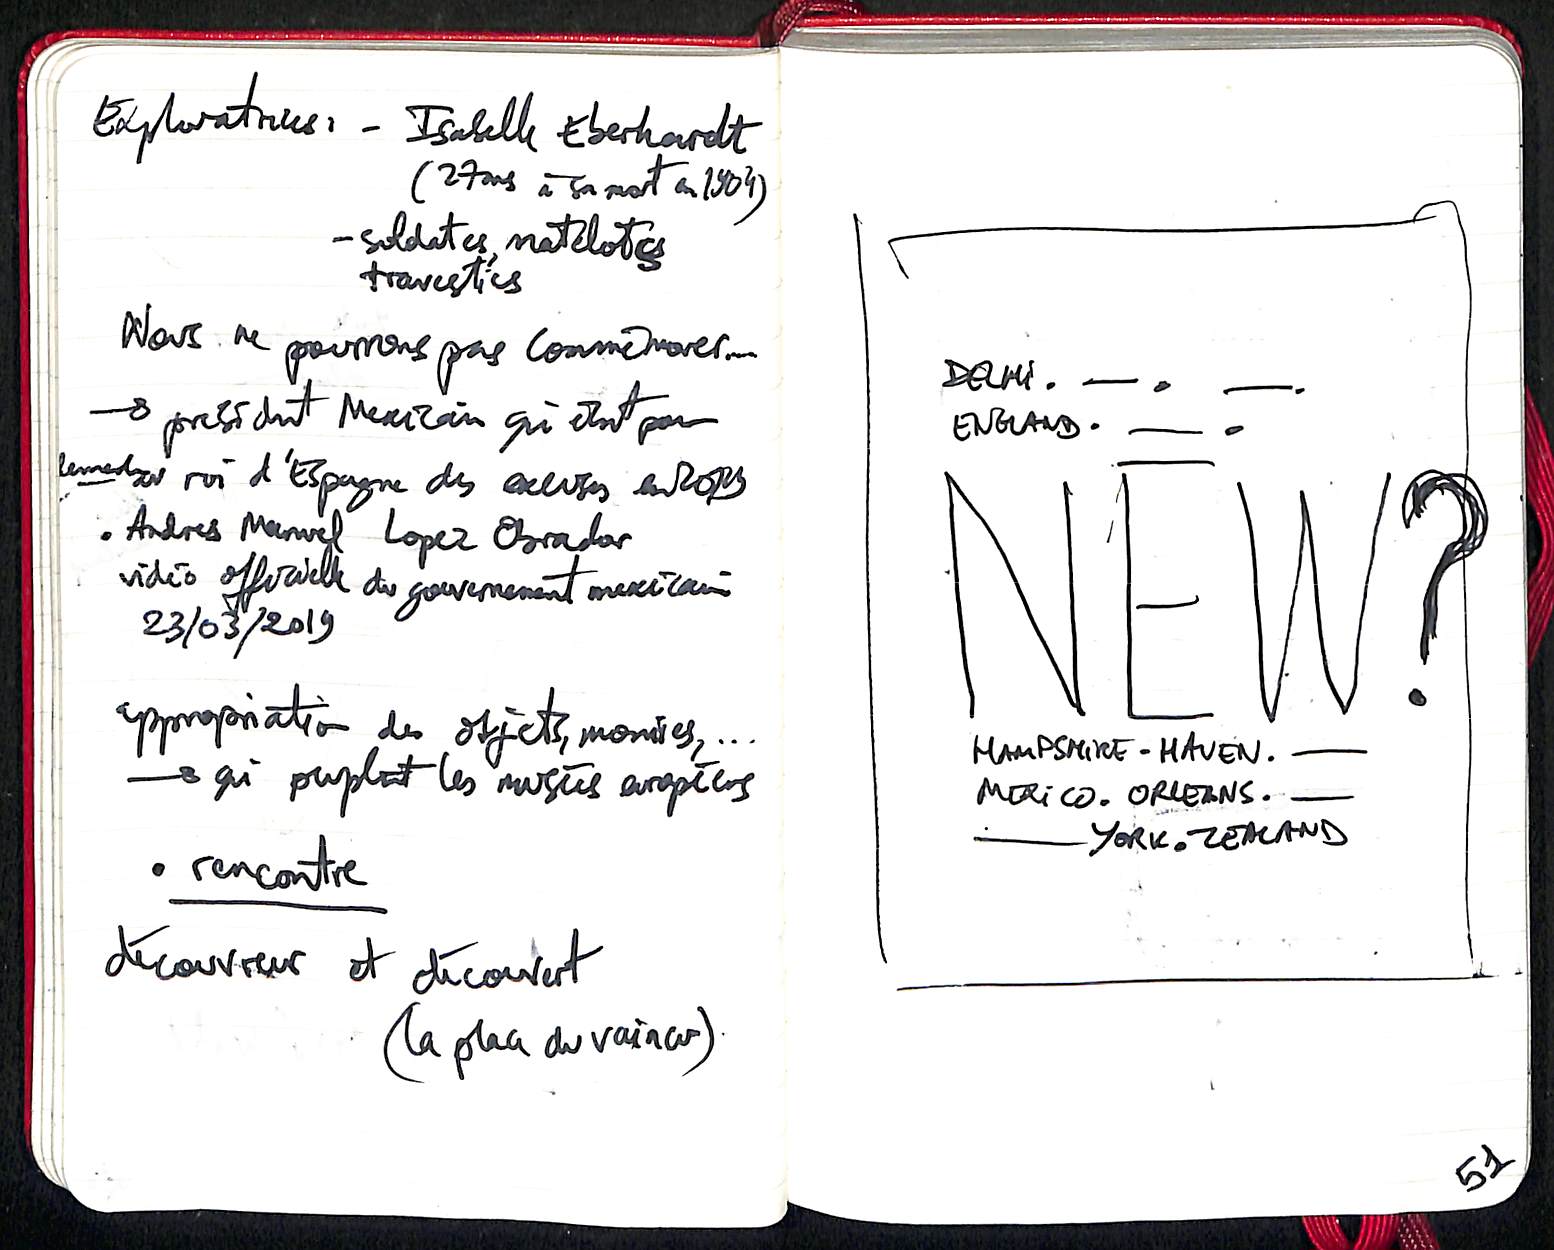 Exploratrices: - Isabelle Eberhardt
(27 ans à sa mort en 1904)
- soldates, matelotes
travesties
Nous ne pourrons pas commémorer...
→ président Mexicain qui était pour
demander au roi d'Espagne des excuses en 2019
• Andres Manuel Lopez Obrador
vidéo officielle du gouvernement mexicain
23/03/2019
appropriation des objets, momies, ...
→ qui peuplent les musées européens
• rencontre
découvreur et découvert
(la place du vaincu).
DELHI. — . — .
ENGLAND. — .
NEW?
HAMPSHIRE - HAVEN. —
MEXICO. ORLEANS. —
— YORK. ZEALAND
51